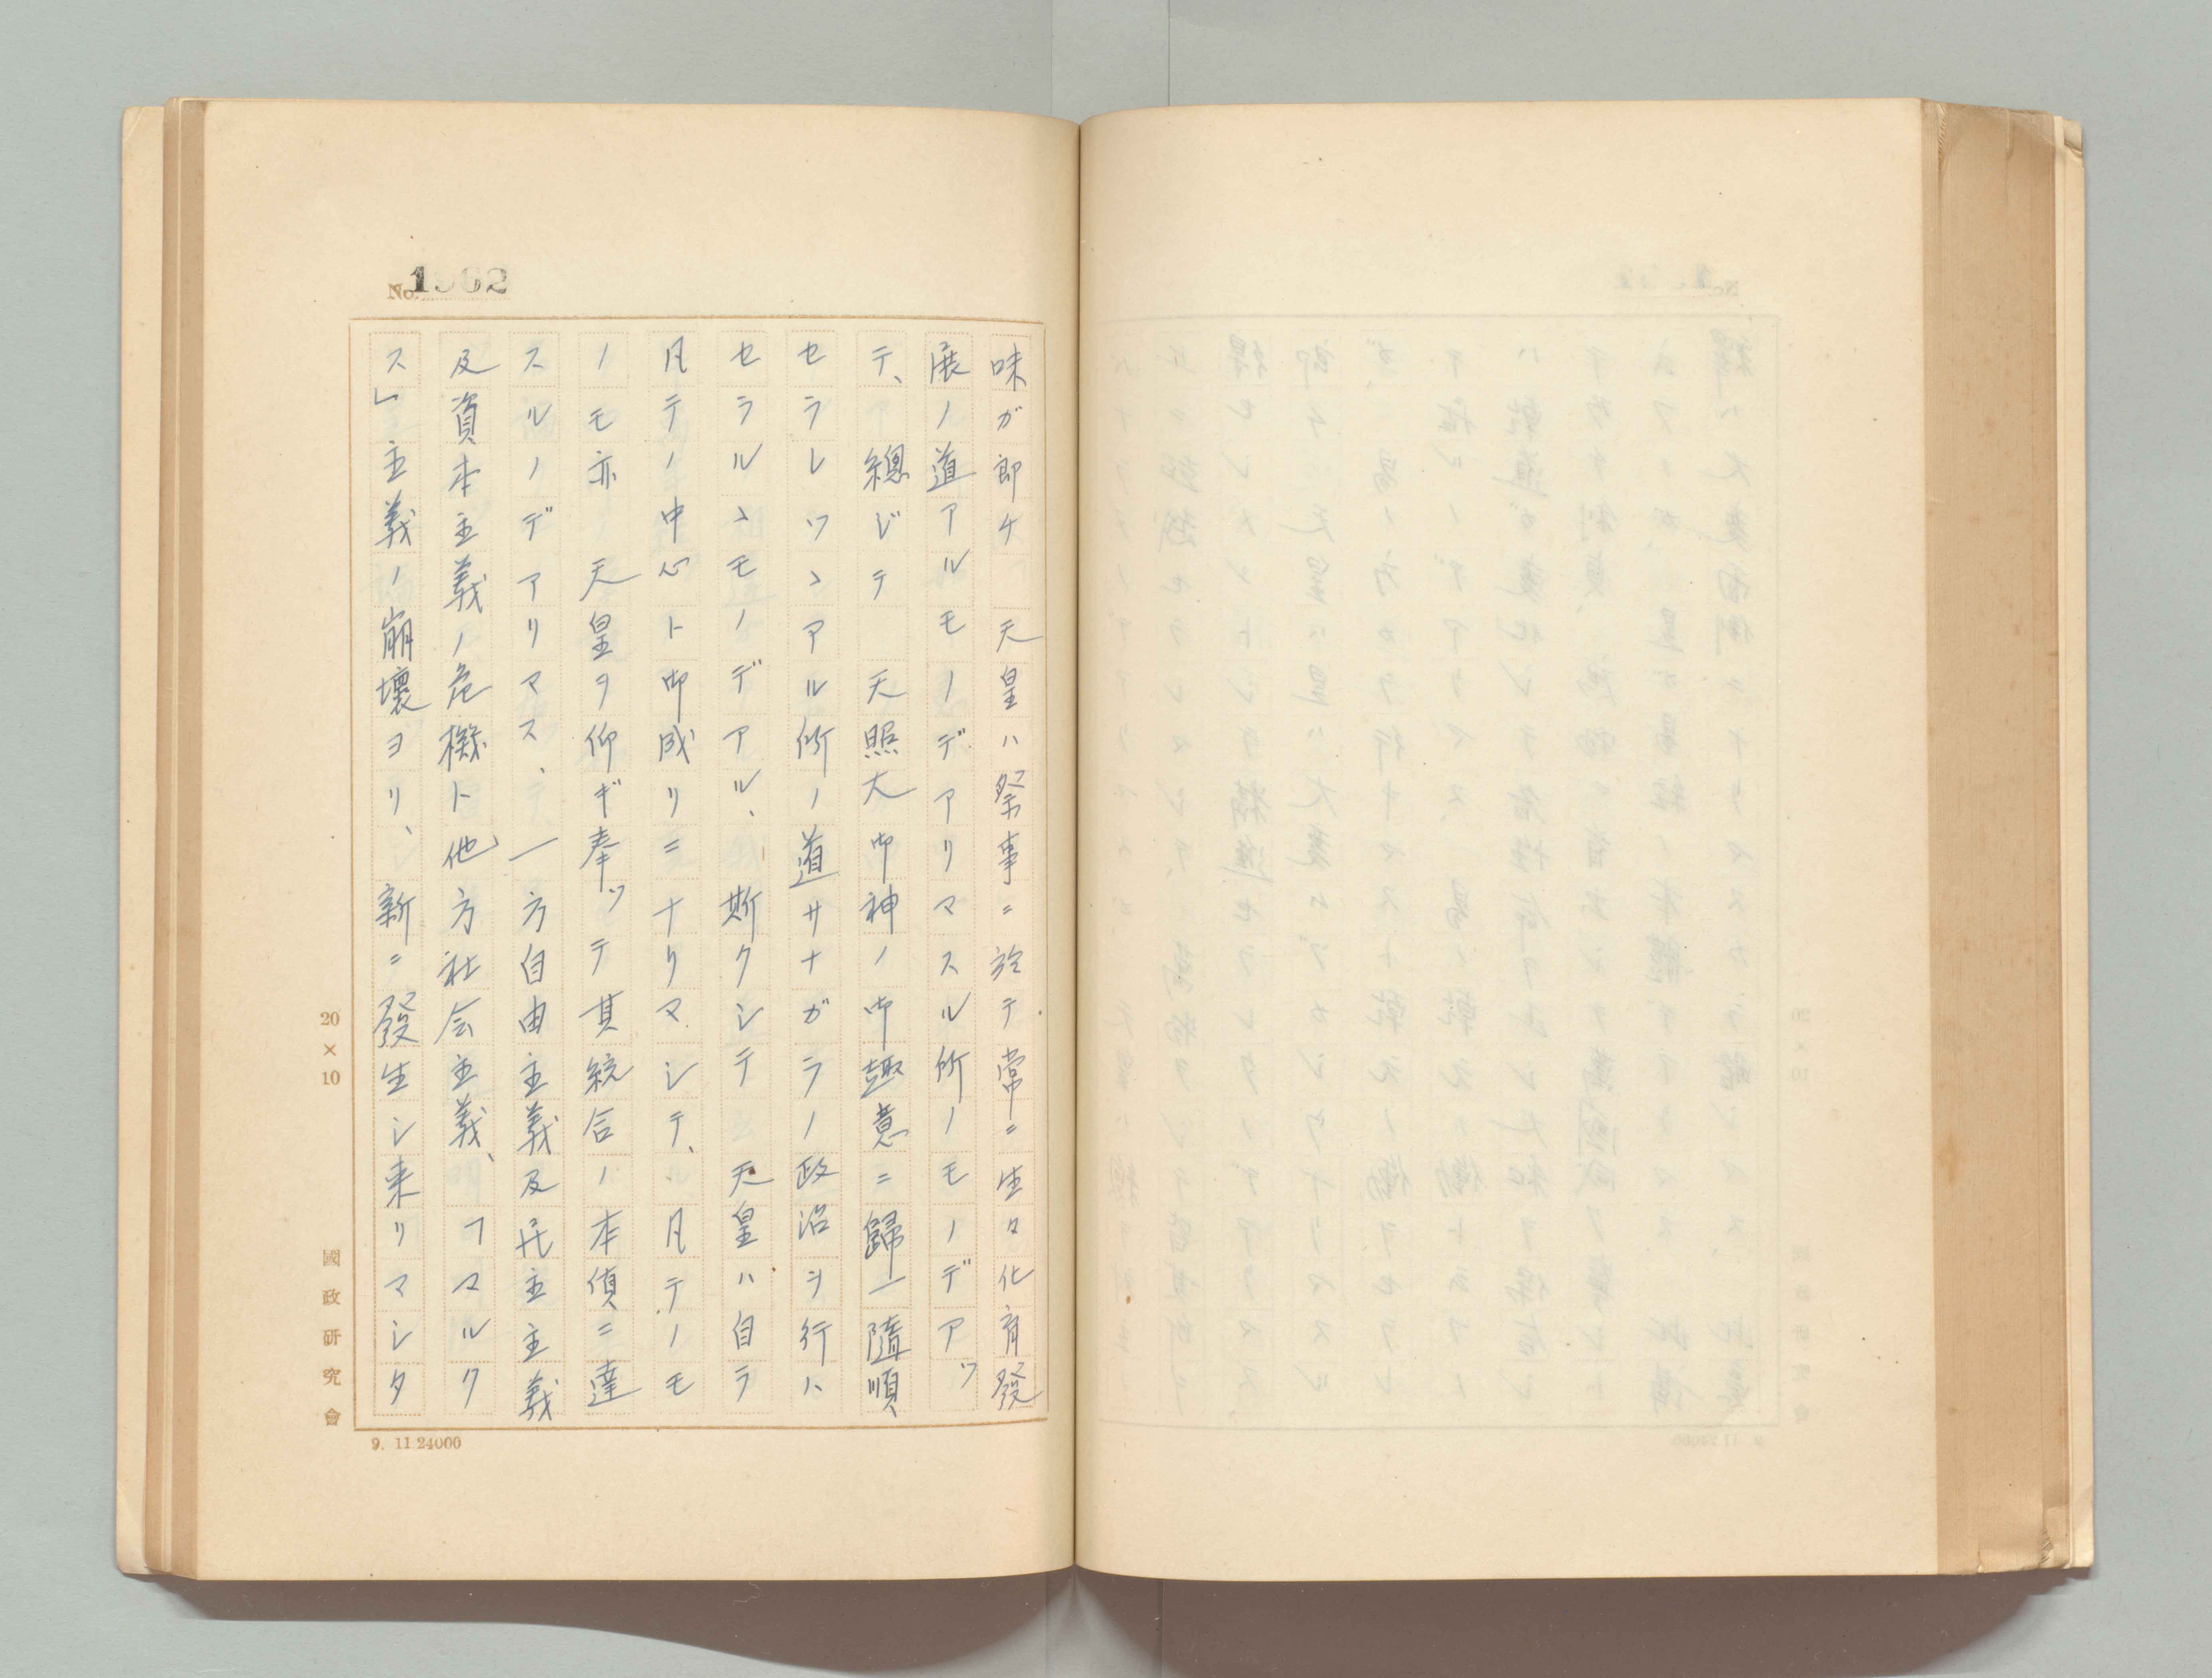 No. 1962
味ガ即チ　天皇ハ祭事ニ於テ常ニ生々化育發
展ノ道アルモノデアリマスル所ノモノデアッ
テ、總ジテ　天照大御神ノ御趣意ニ歸一隨順
セラレツヽアル所ノ道サナガラノ政治ヲ行ハ
セラルヽモノデアル、斯クシテ　天皇ハ自ラ
凡テノ中心ト御成リニナリマシテ、凡テノモ
ノモ亦　天皇ヲ仰ギ奉ッテ其統合ノ本債ニ達
スルノデアリマス、一方自由主義及民主主義
及資本主義ノ危機ト他方社会主義、「マルク
ス」主義ノ崩壞ヨリ、新ニ發生シ来リマシタ
20×10
國政研究會
9. 11 24000